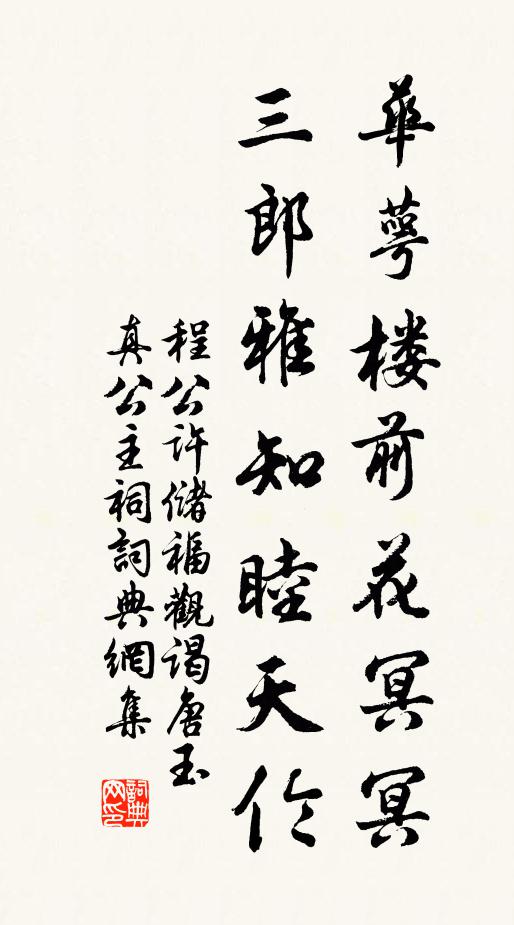 華萼楼前花冥冥
三郎雅知睦天伦
程公許儲福觀謁唐玉
真公主祠詞典網集
詞典网印